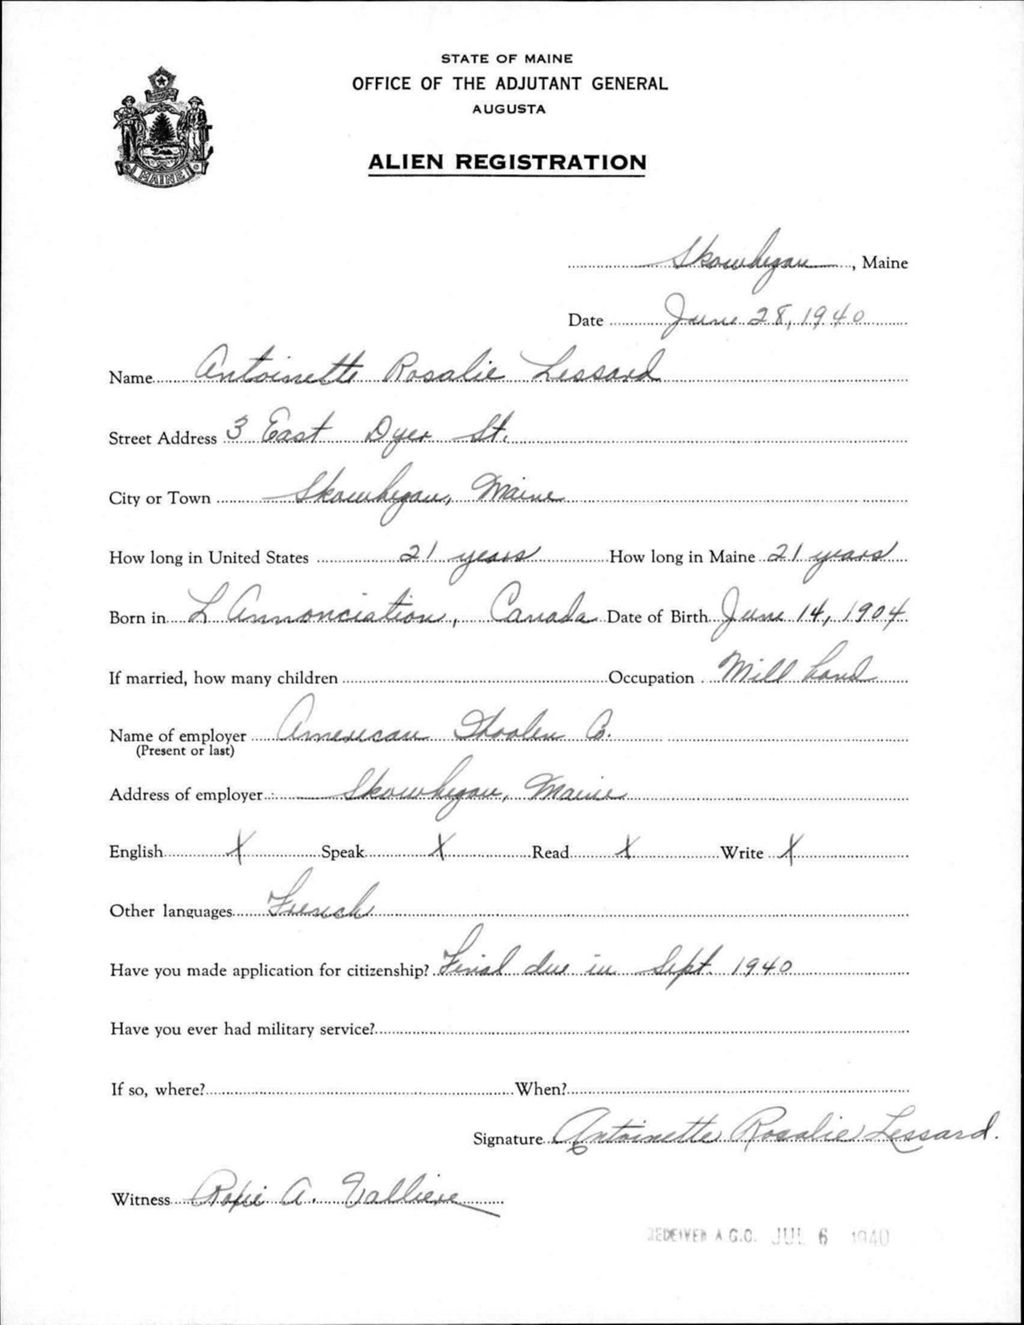 STATE OF MAINE
OFFICE OF THE ADJUTANT GENERAL
AUGUSTA
MAINE
ALIEN REGISTRATION
Skowhegan, Maine
Date June 28, 1940
Name Antoinette Rosalie Lessard
Street Address 3 East Dyer St.
City or Town Skowhegan, Maine
How long in United States 21 years How long in Maine 21 years
Born in L Annonciation, Canada Date of Birth June 14, 1904
If married, how many children Occupation Mill hand
Name of employer American Woolen Co.
(Present or last)
Address of employer Skowhegan, Maine
English X Speak X Read X Write X
Other languages French
Have you made application for citizenship? Final due in Sept 1940
Have you ever had military service?
If so, where? When?
Signature Antoinette Rosalie Lessard.
Witness A. Valliere
RECEIVED A.G.O. JUL 6 1940